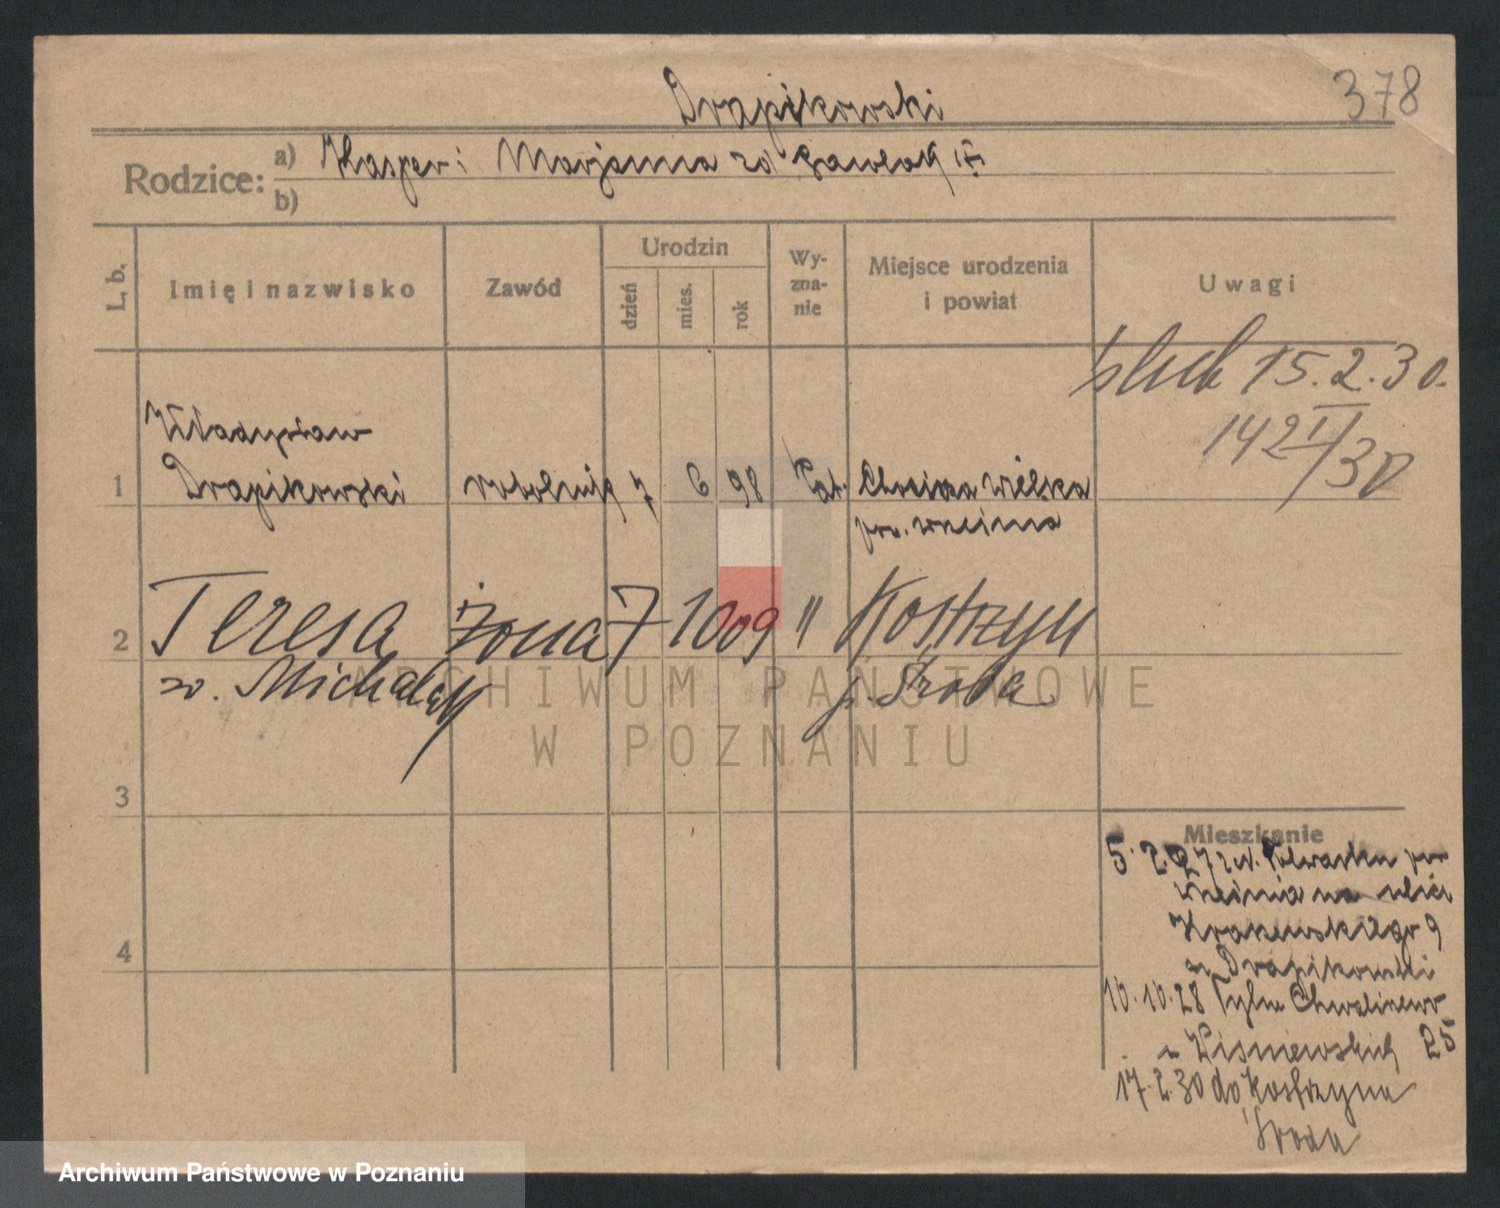 Drapikowski
378
Rodzice:
a) Kasper i Marjanna zd Pawlak
b)
L. b.
Imię i nazwisko
Zawód
Urodzin
dzień
mies.
rok
Wy-
zna-
nie
Miejsce urodzenia
i powiat
Uwagi
ślub 15.2.30.
142 I/30
Władysław
1 Drapikowski robotnik 7 6 98 kat. Wielka
pow.
2 Teresa żona 7 10 09 " Kostrzyn
zd. Michalak p. Środa
3
4
Mieszkanie
5. 2 27 z pow
na ulicę
Kraszewskiego 9
Drapikowski
10.10.28
u Wiśniewskich 25
17.2.30 do Kostrzyna
Środa
ARCHIWUM PAŃSTWOWE
W POZNANIU
Archiwum Państwowe w Poznaniu